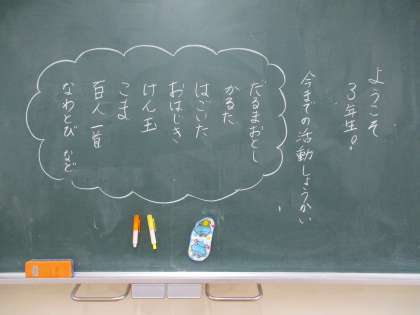 ようこそ
3年生!
今までの活動しょうかい
だるまおとし
かるた
はごいた
おはじき
けん玉
こま
百人一首
なわとび など